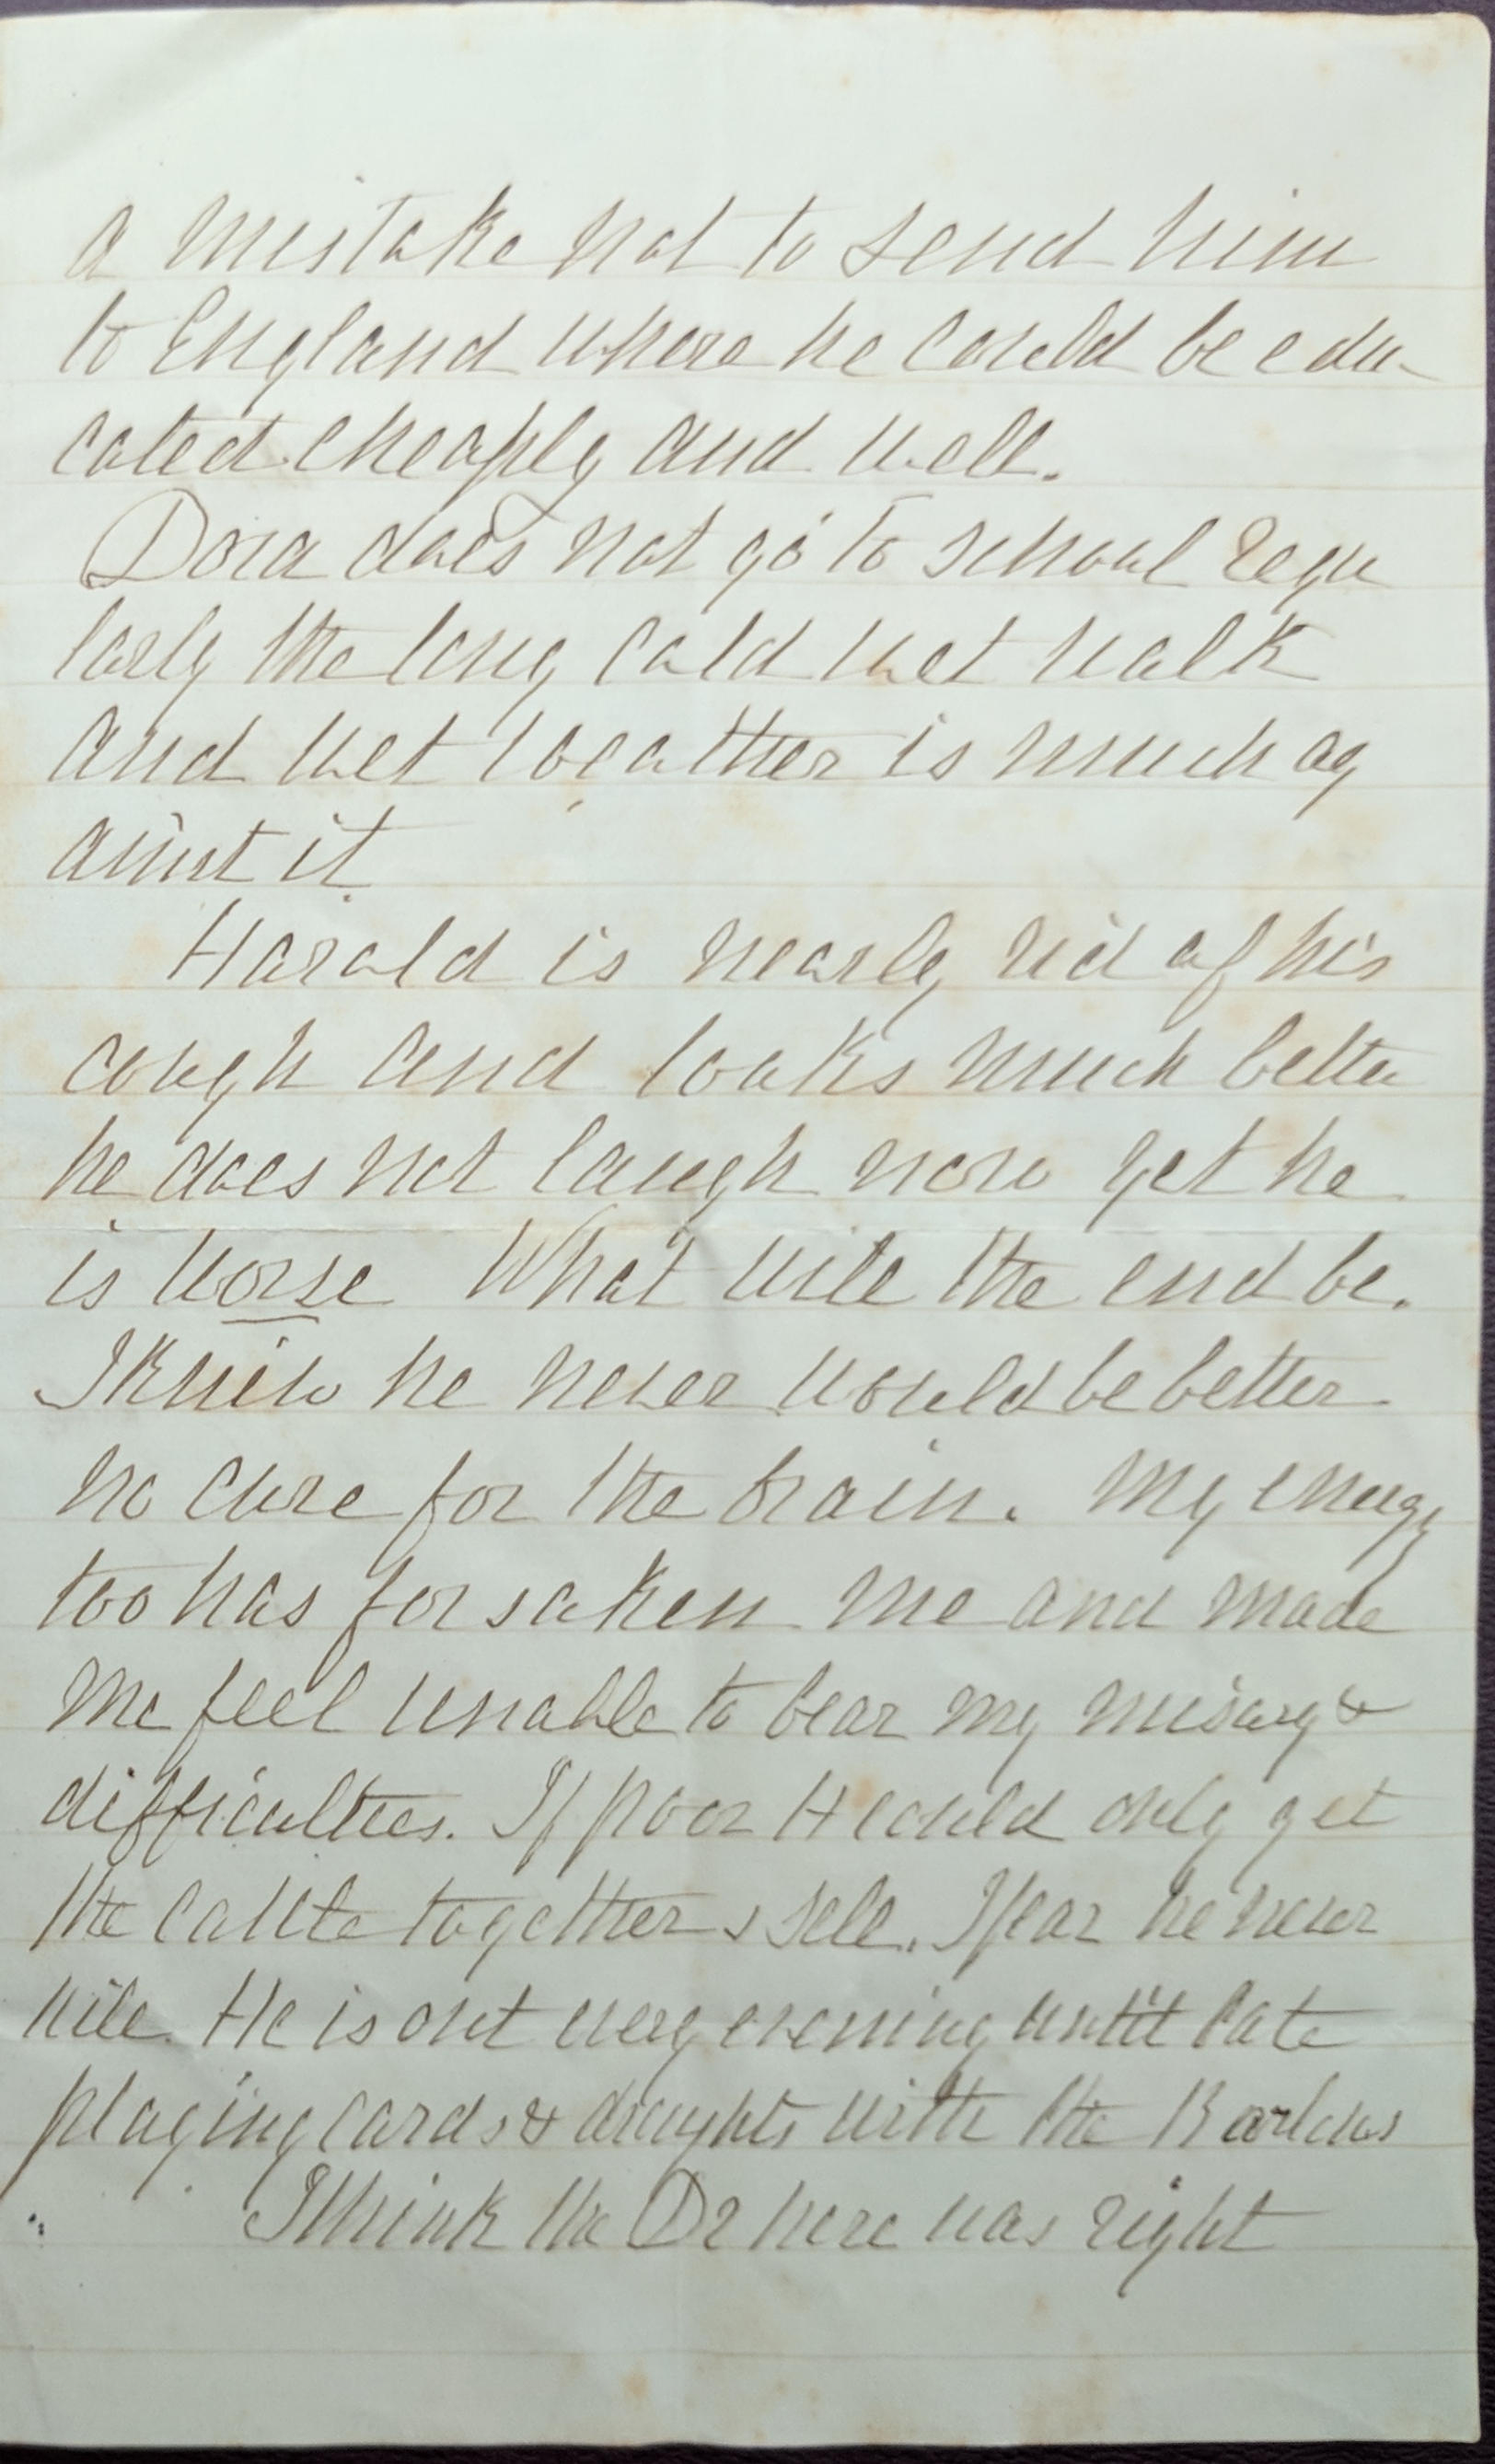 a mistake not to send him
to England where he could be edu-
cated cheaply and well.
Dora does not go to school regu
larly the long cold wet walk
and wet weather is much ag
ainst it
Harold is nearly rid of his
cough and looks much better
he does not laugh now yet he
is worse What will the end be.
I knew he never would be better
no cure for the brain. My energy
too has forsaken me and made
me feel unable to bear my misery &
difficulties. If poor H could only get
the cattle together & sell. I fear he never
will. He is out every evening until late
playing cards & draughts with the
I think the Dr here was right